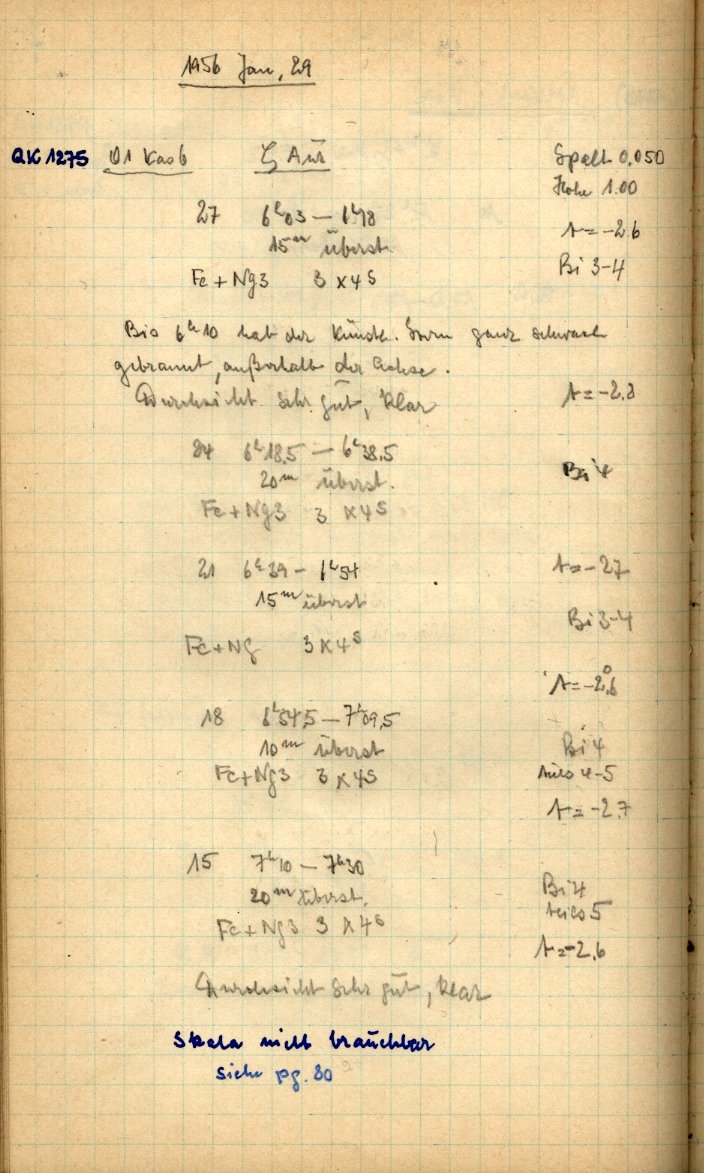 1956 Jan. 29
QK 1275 Q1 Kas6 ζ Aur Spalt 0,050
Höhe 1.00
27 6ʰ03 – 6ʰ18 A = -2.6
15ᵐ überst.
Fe + Ng3 3 x 4ˢ Bi 3-4
Bis 6ʰ10 hat der künstl. Strom ganz schwach
gebrannt, außerhalb der Achse.
Durchsicht sehr gut, klar A = -2.8
24 6ʰ18,5 – 6ʰ38,5
20ᵐ überst. Bi 4
Fe + Ng3 3 x 4ˢ
21 6ʰ39 – 6ʰ54 A = -2.7
15ᵐ überst
Bi 3-4
Fe + Ng 3 x 4ˢ
A = -2,6
18 6ʰ54,5 – 7ʰ09,5
10ᵐ überst Bi 4
Fe + Ng3 3 x 4ˢ 4-5
A = -2.7
15 7ʰ10 – 7ʰ30
20ᵐ überst. Bi 4
Fe + Ng3 3 x 4ˢ 5
A = -2,6
Durchsicht sehr gut, klar
Skala nicht brauchbar
siehe pg. 80